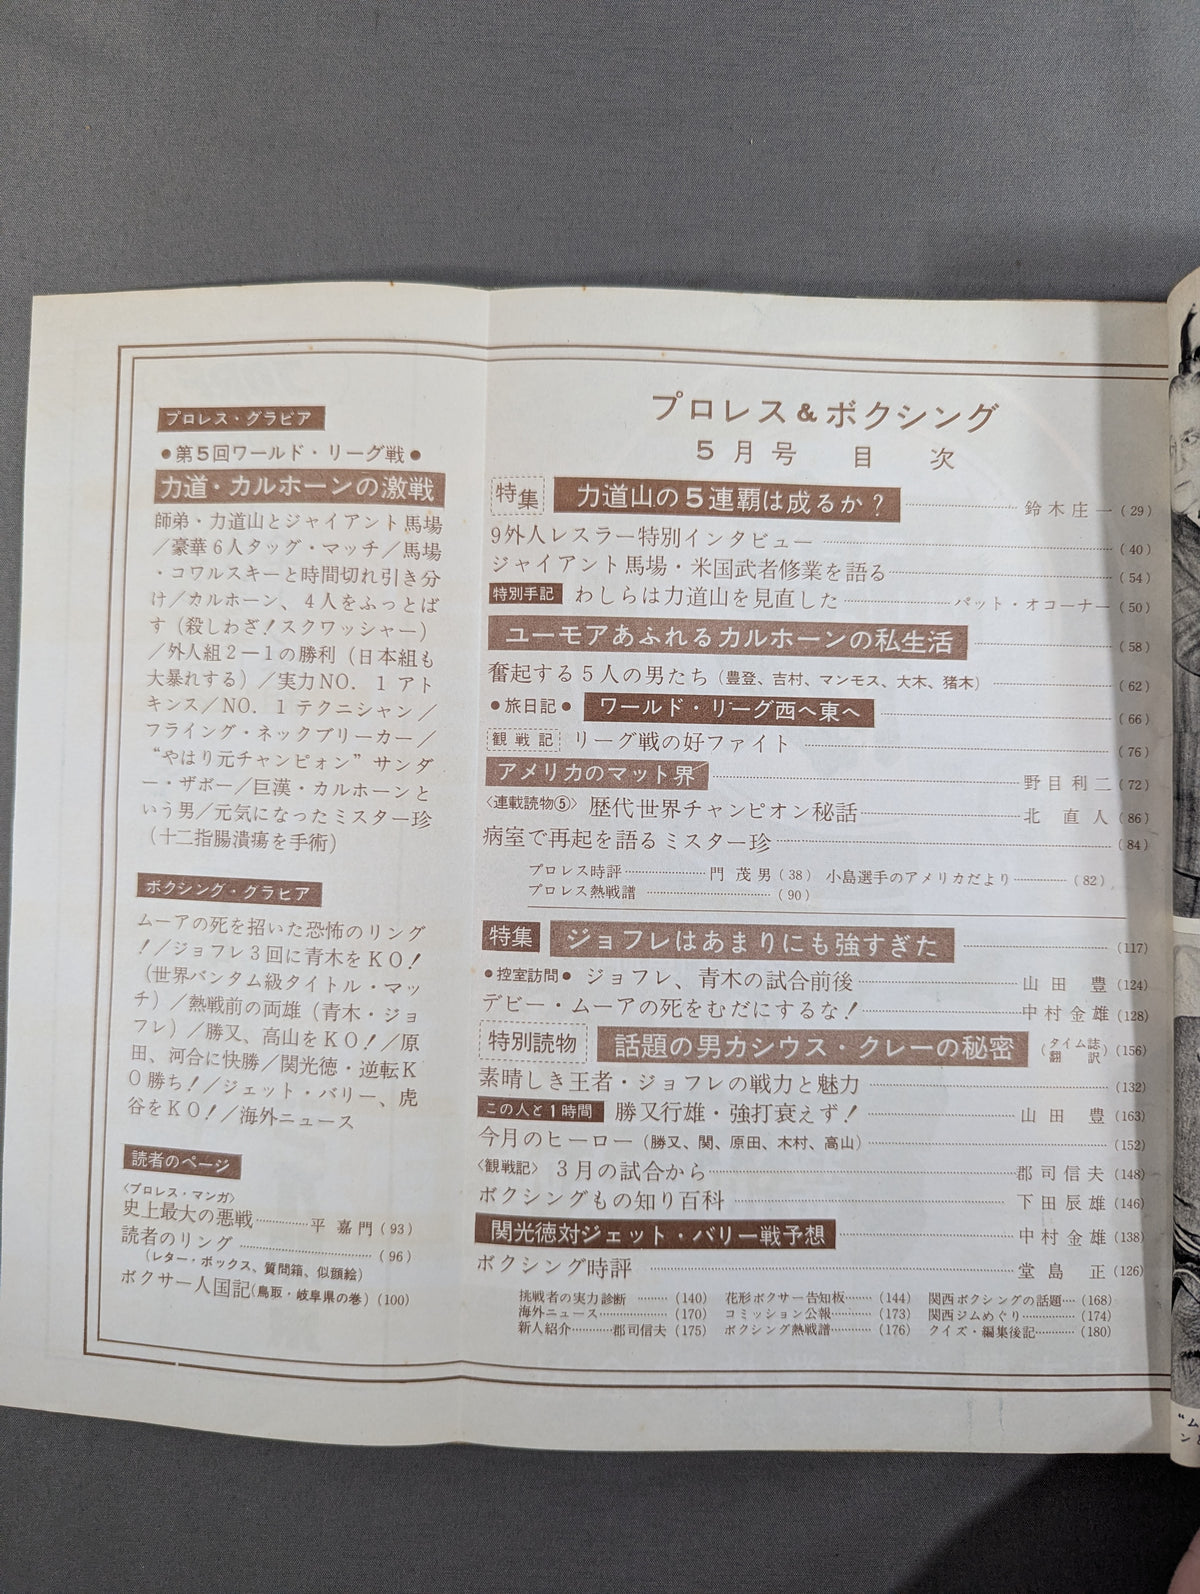 プロレス・グラビア
●第5回ワールド・リーグ戦●
力道・カルホーンの激戦
師弟・力道山とジャイアント馬場
／豪華6人タッグ・マッチ／馬場
・コワルスキーと時間切れ引き分
け／カルホーン、4人をふっとば
す（殺しわざ！スクワッシャー）
／外人組2－1の勝利（日本組も
大暴れする）／実力NO．1アト
キンス／NO．1テクニシャン／
フライング・ネックブリーカー／
“やはり元チャンピオン”サンダ
ー・ザボー／巨漢・カルホーンと
いう男／元気になったミスター珍
（十二指腸潰瘍を手術）
ボクシング・グラビア
ムーアの死を招いた恐怖のリング
！／ジョフレ3回に青木をKO！
（世界バンタム級タイトル・マッ
チ）／熱戦前の両雄（青木・ジョ
フレ）／勝又、高山をKO！／原
田、河合に快勝／関光徳・逆転K
O勝ち！／ジェット・バリー、虎
谷をKO！／海外ニュース
読者のページ
〈プロレス・マンガ〉
史上最大の悪戦…………平嘉門（93）
読者のリング…………（96）
（レター・ボックス、質問箱、似顔絵）
ボクサー人国記（鳥取・岐阜県の巻）（100）
プロレス＆ボクシング
5月号　目次
特集 力道山の5連覇は成るか？…………鈴木庄一（29）
9外人レスラー特別インタビュー…………（40）
ジャイアント馬場・米国武者修業を語る…………（54）
特別手記 わしらは力道山を見直した…………パット・オコーナー（50）
ユーモアあふれるカルホーンの私生活…………（58）
奮起する5人の男たち（豊登、吉村、マンモス、大木、猪木）…………（62）
●旅日記● ワールド・リーグ西へ東へ…………（66）
観戦記 リーグ戦の好ファイト…………（76）
アメリカのマット界…………野目利二（72）
〈連載読物⑤〉歴代世界チャンピオン秘話…………北直人（86）
病室で再起を語るミスター珍…………（84）
プロレス時評…………門茂男（38）　小島選手のアメリカだより…………（82）
プロレス熱戦譜…………（90）
特集 ジョフレはあまりにも強すぎた…………（117）
●控室訪問● ジョフレ、青木の試合前後…………山田豊（124）
デビー・ムーアの死をむだにするな！…………中村金雄（128）
特別読物 話題の男カシウス・クレーの秘密（タイム誌翻訳）（156）
素晴しき王者・ジョフレの戦力と魅力…………（132）
この人と1時間 勝又行雄・強打衰えず！…………山田豊（163）
今月のヒーロー（勝又、関、原田、木村、高山）…………（152）
〈観戦記〉3月の試合から…………郡司信夫（148）
ボクシングもの知り百科…………下田辰雄（146）
関光徳対ジェット・バリー戦予想…………中村金雄（138）
ボクシング時評…………堂島正（126）
挑戦者の実力診断………（140）　花形ボクサー告知板………（144）　関西ボクシングの話題…（168）
海外ニュース…………（170）　コミッション公報………（173）　関西ジムめぐり…………（174）
新人紹介…………郡司信夫（175）　ボクシング熱戦譜………（176）　クイズ・編集後記…………（180）